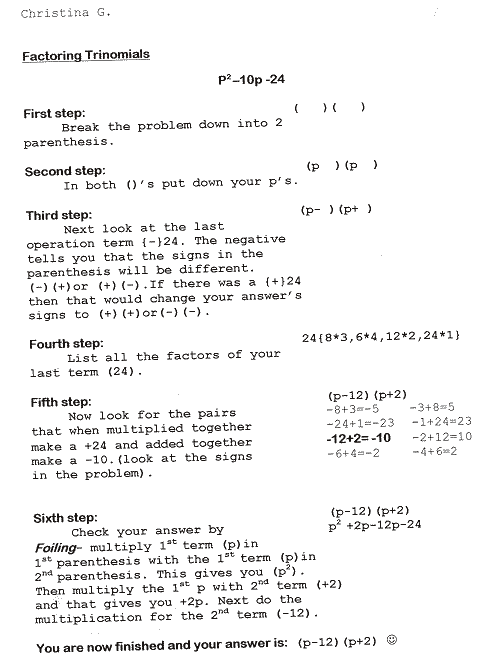 Christina G.
Factoring Trinomials
P²–10p -24
First step: (   ) (   )
Break the problem down into 2
parenthesis.
Second step: (p   ) (p   )
In both ()'s put down your p's.
Third step: (p-  ) (p+  )
Next look at the last
operation term {-}24. The negative
tells you that the signs in the
parenthesis will be different.
(-) (+) or (+) (-) .If there was a {+}24
then that would change your answer's
signs to (+) (+) or (-) (-) .
Fourth step: 24{8*3,6*4,12*2,24*1}
List all the factors of your
last term (24).
Fifth step: (p-12) (p+2)
Now look for the pairs -8+3=-5 -3+8=5
that when multiplied together -24+1=-23 -1+24=23
make a +24 and added together -12+2= -10 -2+12=10
make a -10.(look at the signs -6+4=-2 -4+6=2
in the problem).
Sixth step: (p-12) (p+2)
Check your answer by p² +2p-12p-24
Foiling- multiply 1st term (p) in
1st parenthesis with the 1st term (p) in
2nd parenthesis. This gives you (p²).
Then multiply the 1st p with 2nd term (+2)
and that gives you +2p. Next do the
multiplication for the 2nd term (-12).
You are now finished and your answer is: (p-12) (p+2) ☺